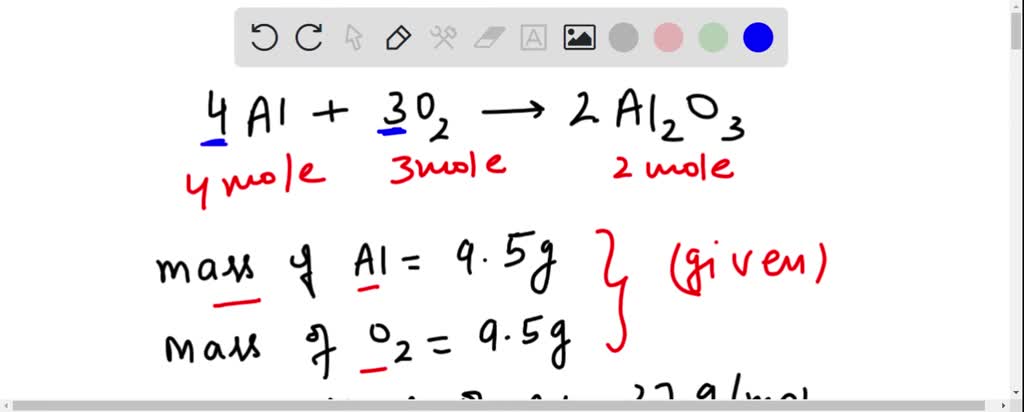 4 Al + 3O₂ → 2 Al₂O₃
4 mole 3mole 2 mole
mass of Al = 9.5g (given)
mass of O₂ = 9.5g
27 g/mol